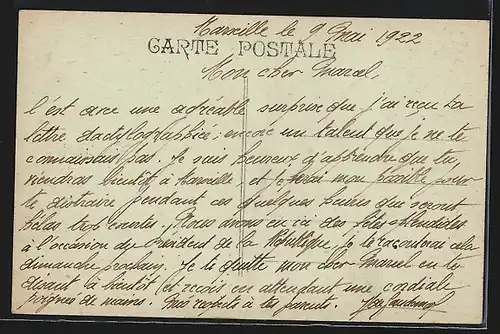 Marseille le 9 Mai 1922
CARTE POSTALE
Mon cher Marcel,
C'est avec une agréable surprise que j'ai reçu ta
lettre dactylographiée; encore un talent que je ne te
connaissais pas. Je suis heureux d'apprendre que tu
viendras bientôt à Marseille, et je ferai mon possible pour
te distraire pendant ces quelques heures qui seront
hélas trop courtes. Nous avons eu ici des fêtes splendides
à l'occasion du Président de la République, je te raconterai cela
dimanche prochain. Je te quitte mon cher Marcel en te
disant à bientôt et reçois en attendant une cordiale
poignée de mains. Mes respects à tes parents.